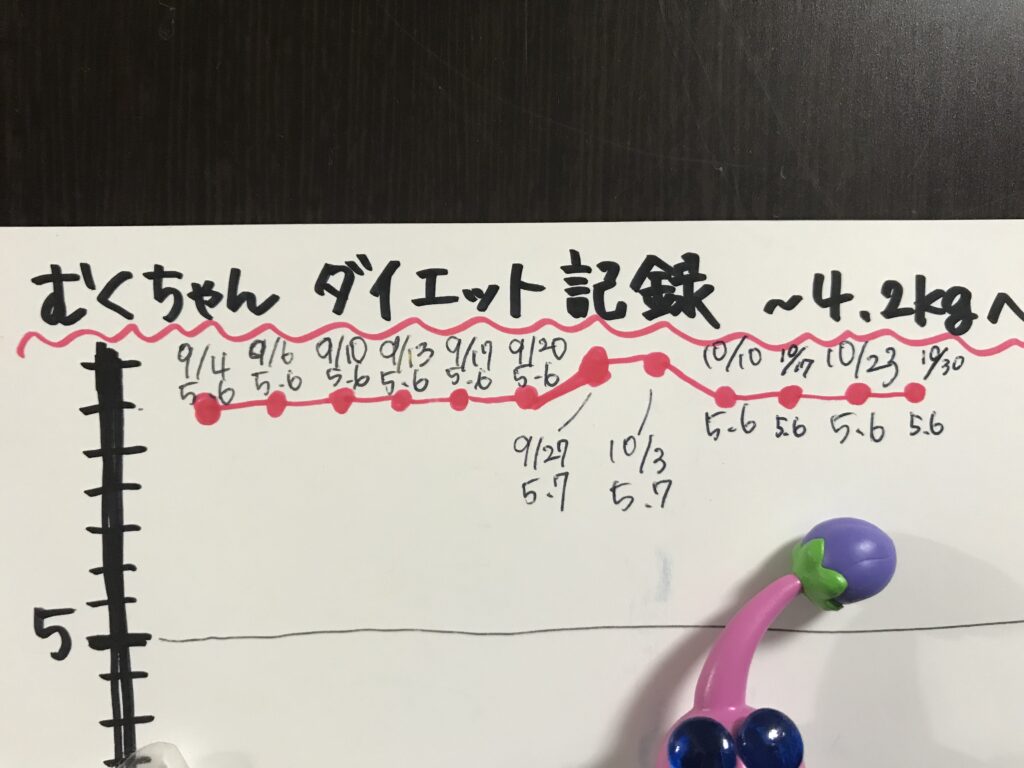 むくちゃん ダイエット 記録 ~4.2kgへ
9/4 9/6 9/10 9/13 9/17 9/20 10/10 10/17 10/23 10/30
5.6 5.6 5.6 5.6 5.6 5.6 5.6 5.6 5.6 5.6
9/27 10/3
5.7 5.7
5